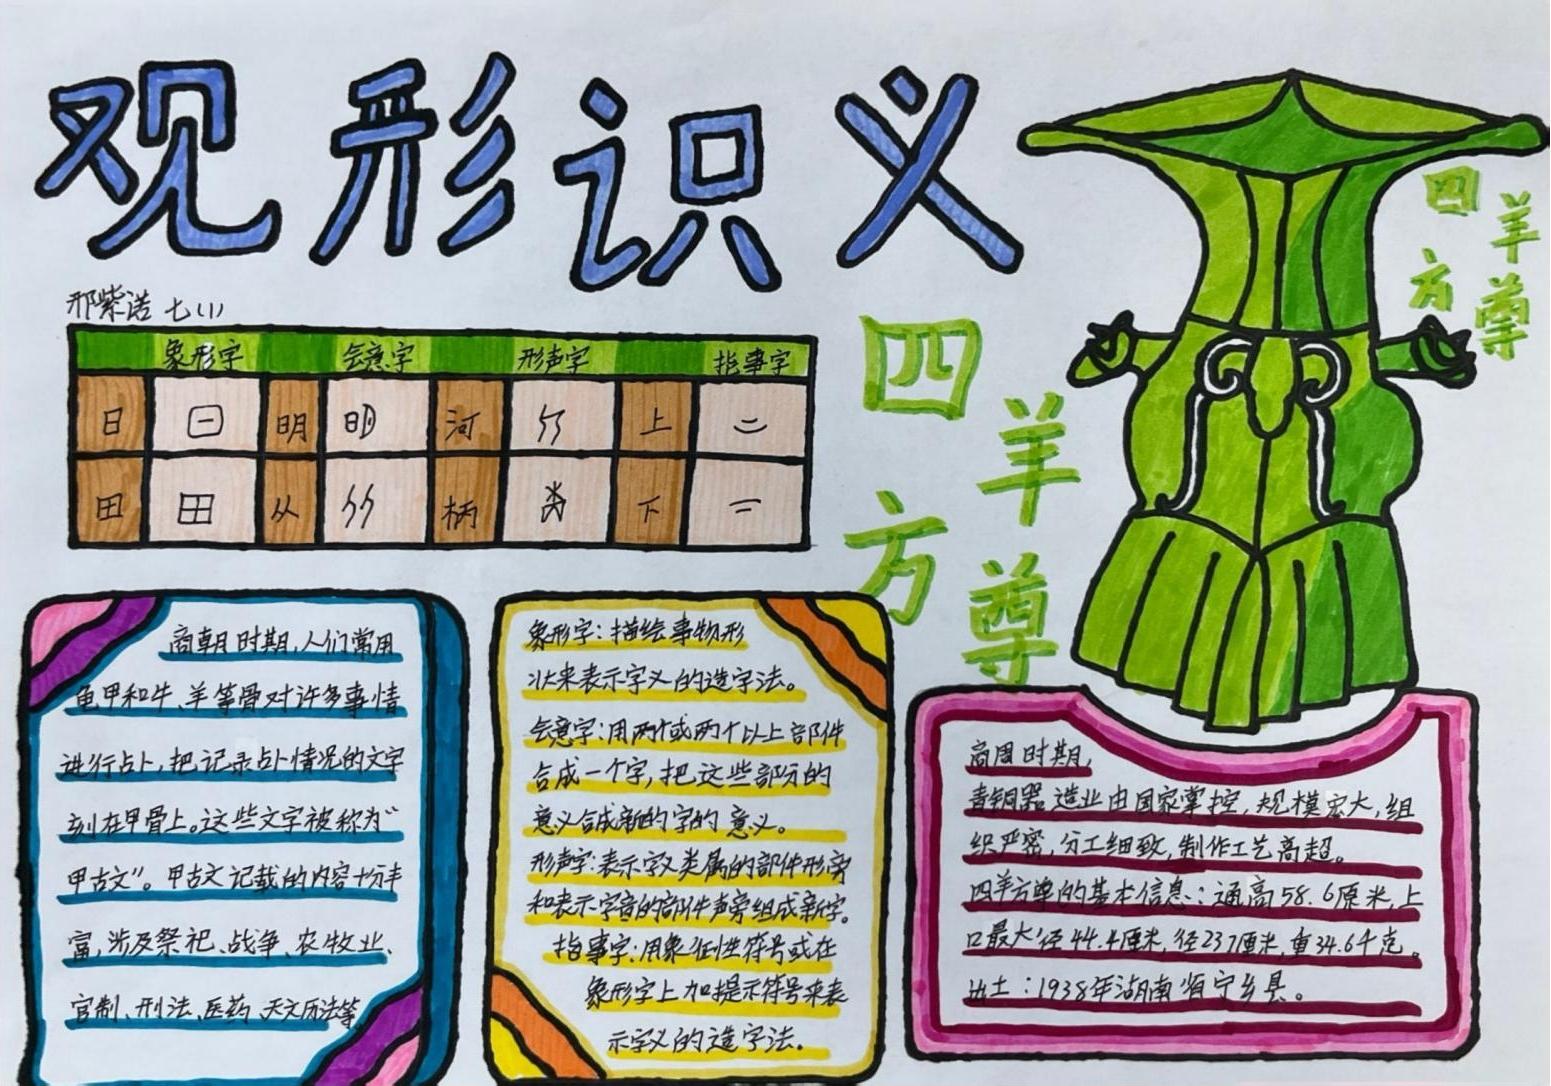 观形识义
邢紫诺 七(1)
象形字 会意字 形声字 指事字
日 明 河 上
田 从 柄 下
四羊方尊
四羊方尊
商朝时期,人们常用
龟甲和牛、羊等骨对许多事情
进行占卜,把记录占卜情况的文字
刻在甲骨上。这些文字被称为“
甲古文”。甲古文记载的内容十分丰
富,涉及祭祀、战争、农牧业、
官制、刑法、医药、天文历法等
象形字:描绘事物形
状来表示字义的造字法。
会意字:用两个或两个以上部件
合成一个字,把这些部分的
意义合成新的字的意义。
形声字:表示字义类属的部件形旁
和表示字音的部件声旁组成新字。
指事字:用象征性符号或在
象形字上加提示符号来表
示字义的造字法。
商周时期,
青铜器造业由国家掌控,规模宏大,组
织严密,分工细致,制作工艺高超。
四羊方尊的基本信息:通高58.6厘米,上
口最大径44.4厘米,径237厘米,重34.6千克。
出土:1938年湖南省宁乡县。